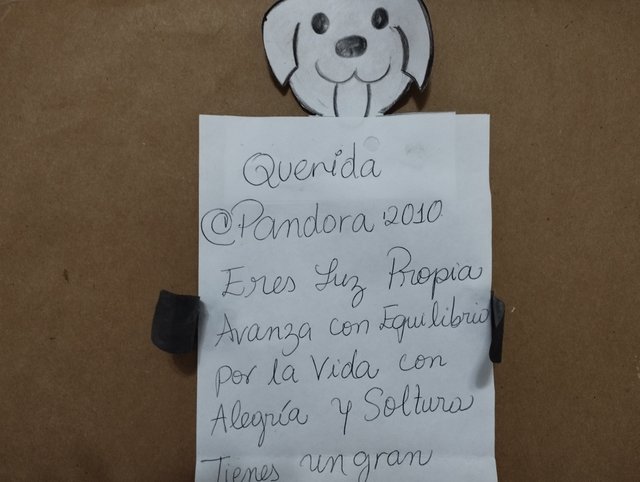 Querida
@Pandora 2010
Eres Luz Propia
Avanza con Equilibrio
por la Vida con
Alegría y Soltura
Tienes un gran